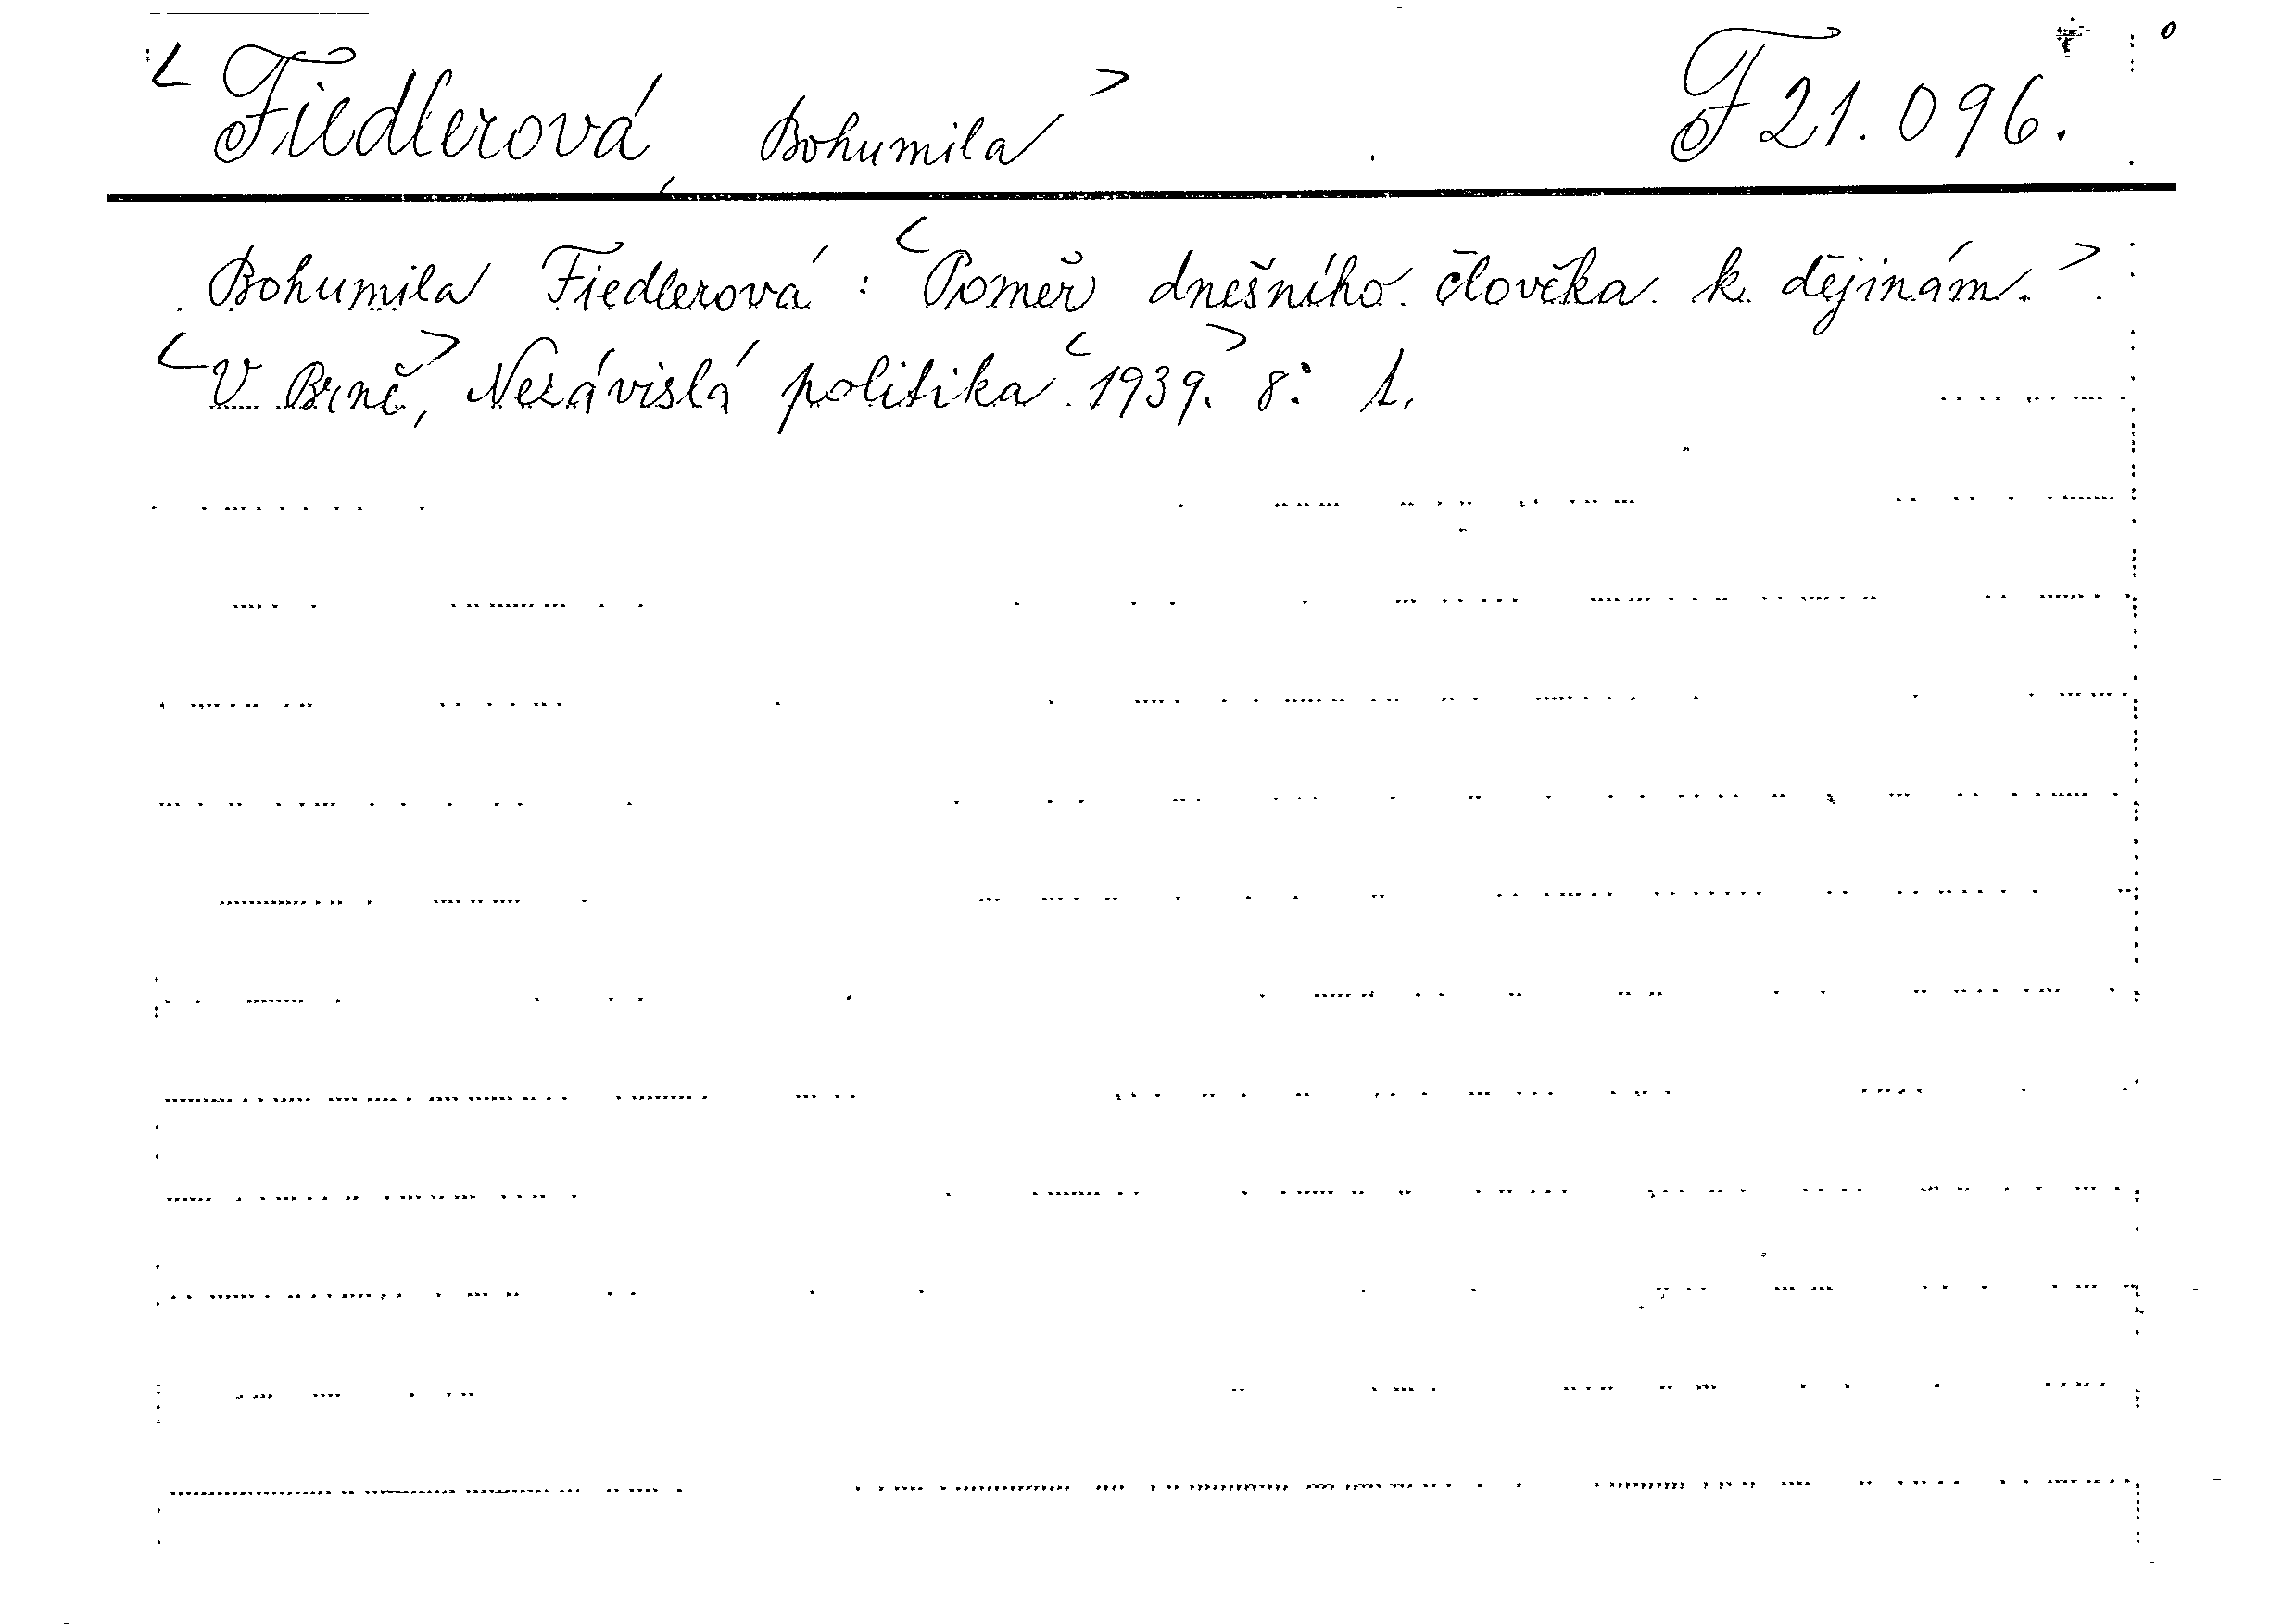 <Fiedlerová, Bohumila> F 21.096.
Bohumila Fiedlerová: <Poměr dnešního člověka k dějinám.>
<V Brně>, Nezávislá politika <1939.> 8° 1.